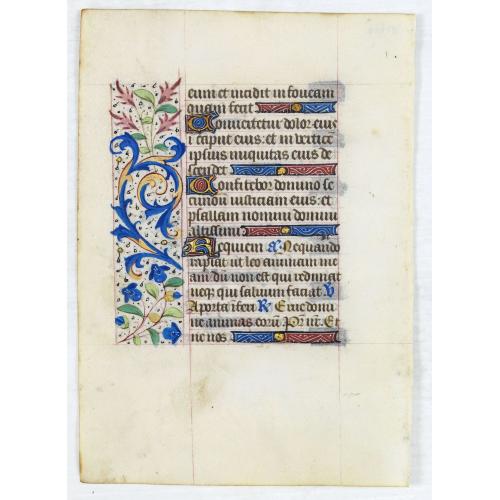 eum et incidit in foueam
quam fecit
Conuertetur dolor eius
i caput eius: et in vertice
ipsius iniquitas eius de
scendet
Confitebor domino se
cundu iusticiam eius: et
psallam nomini domini
altissimi
Requiem a. Nequando
rapiat ut leo animam me
am du non est qui redimat
neqz qui saluum faciat V
A porta iferi R Erue domi
ne animas eoru Pr nr. Et
ne nos